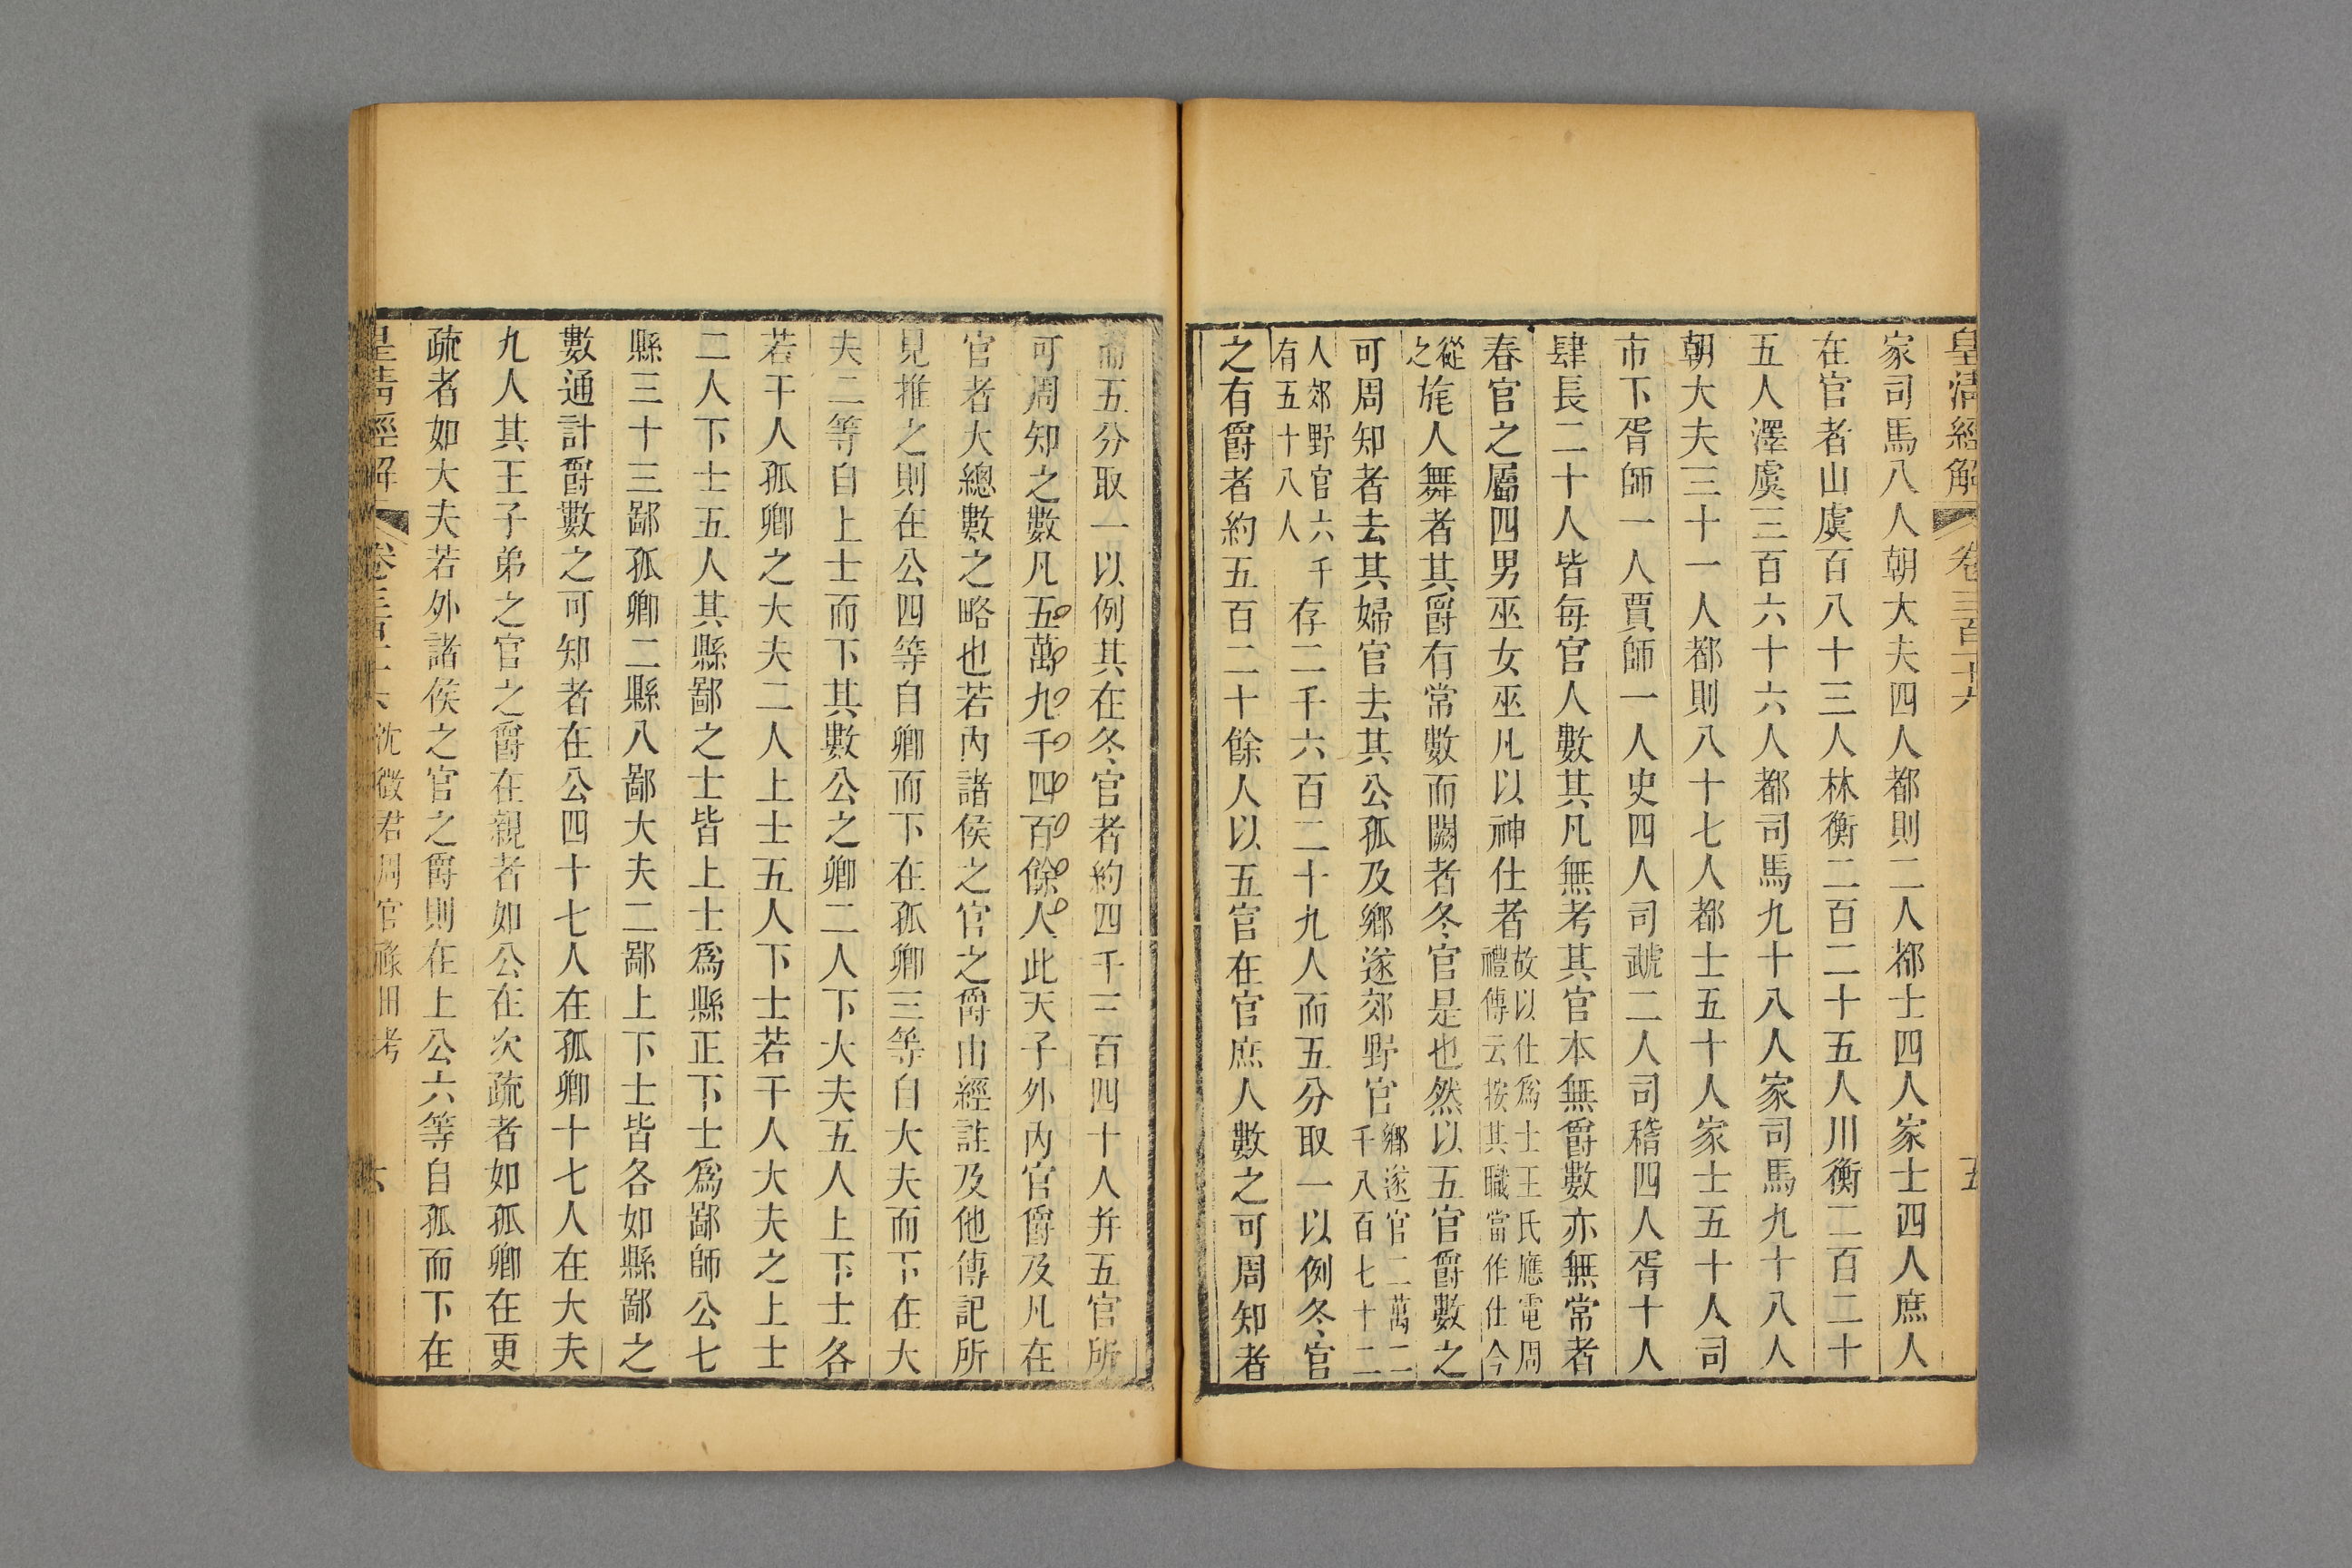 皇清經解 卷三百十六 五
家司馬八人朝大夫四人都則二人都士四人家士四人庶人
在官者山虞百八十三人林衡二百二十五人川衡二百二十
五人澤虞三百六十六人都司馬九十八人家司馬九十八人
朝大夫三十一人都則八十七人都士五十人家士五十人司
市下胥師一人賈師一人史四人司虣二人司稽四人胥十人
肆長二十人皆每官人數其凡無考其官本無爵數亦無常者
春官之屬四男巫女巫凡以神仕者故以仕為士王氏應電周禮傳云按其職當作仕今
從之旄人舞者其爵有常數而闕者冬官是也然以五官爵數之
可周知者去其婦官去其公孤及鄉遂郊野官鄉遂官二萬二千八百七十二
人郊野官六千有五十八人存二千六百二十九人而五分取一以例冬官
之有爵者約五百二十餘人以五官在官庶人數之可周知者
而五分取一以例其在冬官者約四千三百四十人并五官所
可周知之數凡五萬九千四百餘人此天子外內官爵及凡在
官者大總數之略也若內諸侯之官之爵由經註及他傳記所
見推之則在公四等自卿而下在孤卿三等自大夫而下在大
夫二等自上士而下其數公之卿二人下大夫五人上下士各
若干人孤卿之大夫二人上士五人下士若干人大夫之上士
二人下士五人其縣鄙之士皆上士為縣正下士為鄙師公七
縣三十三鄙孤卿二縣八鄙大夫二鄙上下士皆各如縣鄙之
數通計爵數之可知者在公四十七人在孤卿十七人在大夫
九人其王子弟之官之爵在親者如公在次疏者如孤卿在更
疏者如大夫若外諸侯之官之爵則在上公六等自孤而下在
皇清經解 卷三百十六 沈徵君周官祿田考 六